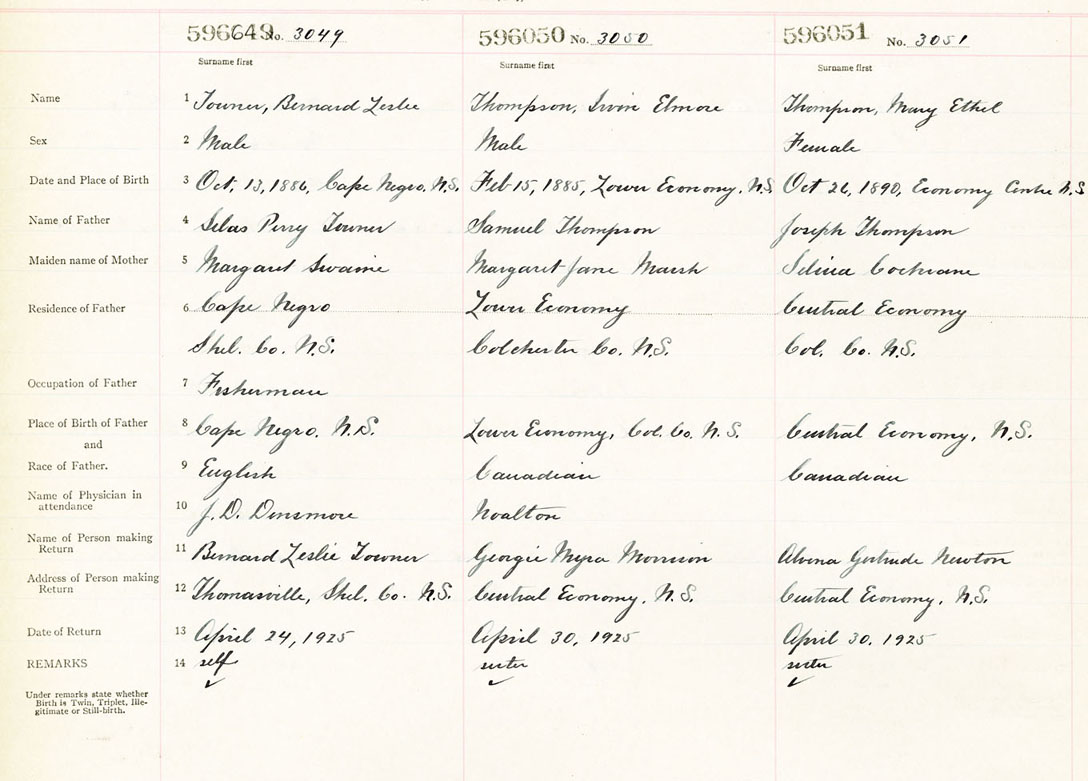 596649 No. 3049 596050 No. 3050 596051 No. 3051
Surname first Surname first Surname first
Name 1 Towner, Bernard Leslie Thompson, Irvin Elmore Thompson, Mary Ethel
Sex 2 Male Male Female
Date and Place of Birth 3 Oct. 13, 1886, Cape Negro, N.S. Feb 15, 1885, Lower Economy, N.S. Oct 26, 1890, Economy Centre N.S
Name of Father 4 Silas Perry Towner Samuel Thompson Joseph Thompson
Maiden name of Mother 5 Margaret Swaine Margaret Jane Marsh Selina Cochrane
Residence of Father 6 Cape Negro Lower Economy Central Economy
Shel. Co. N.S. Colchester Co. N.S. Col. Co. N.S.
Occupation of Father 7 Fisherman
Place of Birth of Father 8 Cape Negro. N.S. Lower Economy, Col. Co. N.S. Central Economy, N.S.
and
Race of Father. 9 English Canadian Canadian
Name of Physician in
attendance 10 J. D. Densmore Noalton
Name of Person making
Return 11 Bernard Leslie Towner Georgie Myra Morrison Alvena Gertrude Newton
Address of Person making
Return 12 Thomasville, Shel. Co. N.S. Central Economy, N.S. Central Economy, N.S.
Date of Return 13 April 24, 1925 April 30, 1925 April 30, 1925
REMARKS 14 self sister sister
Under remarks state whether
Birth is Twin, Triplet, Ille-
gitimate or Still-birth.